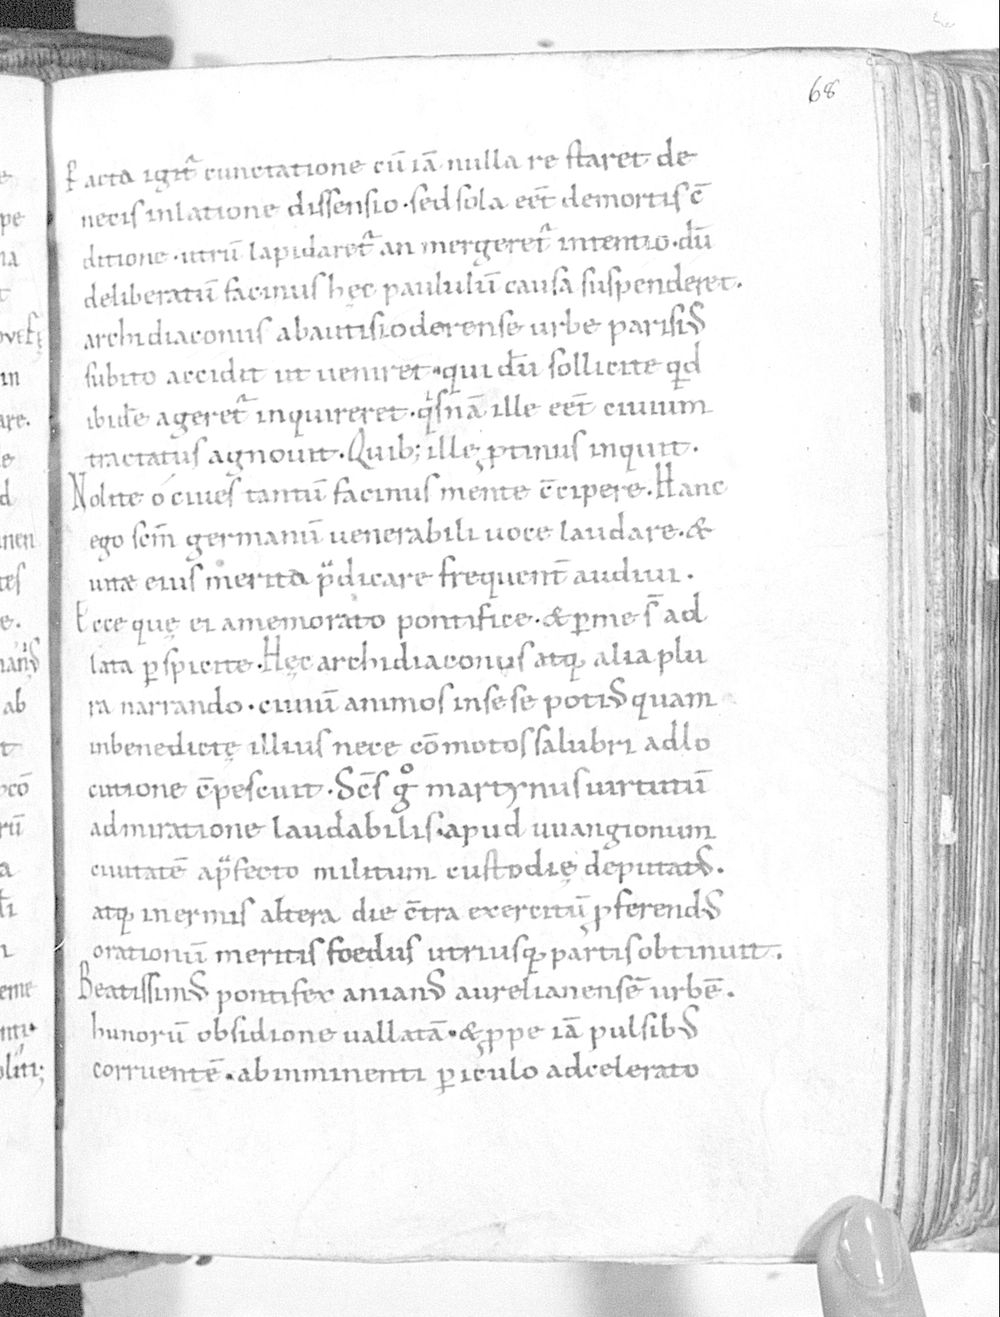 68
Facta igit᷑ cunctatione cū iā nulla re staret de
necis inlatione dissensio · sed sola eēt de mortis c̄
ditione · utrū lapidaret᷑ an mergeret᷑ intentio · dū
deliberatū facinus hęc paululū causa suspenderet.
archidiaconus ab autisioderense urbe parisi9
subito accidit ut ueniret · qui dū sollicite qd
ibidē ageret᷑ inquireret · qͥsnā ille eēt ciuium
tractatus agnouit · Quib; ille ꝓtinus inquit.
Nolite o ciues tantū facinus mente c̄cipere. Hanc
ego scm̄ germanū uenerabili uoce laudare · &
uitæ eius merita p̈dicare frequent̄ audiui.
Ecce quę ei a memorato pontifice · & ꝑ me s̄ ad
lata ꝑspicite · Hęc archidiaconus atq; alia plu
ra narrando · ciuiū animos in se se poti9 quam
in benedictę illius nece cōmotos salubri adlo
cutione c̄pescuit · Scs̄ gͦ martynus uirtutū
admiratione laudabilis · apud uuangionum
ciuitatē a p̈fecto militum custodię deputat9.
atq; inermis altera die c̄tra exercitū ꝓferend9
orationū meritis foedus utriusq; partis obtinuit.
Beatissim9 pontifex anian9 aurelianensē urbē.
hunorū obsidione uallatā · & ꝓpe iā pulsib9
corruentē · ab imminenti ꝑiculo adcelerato